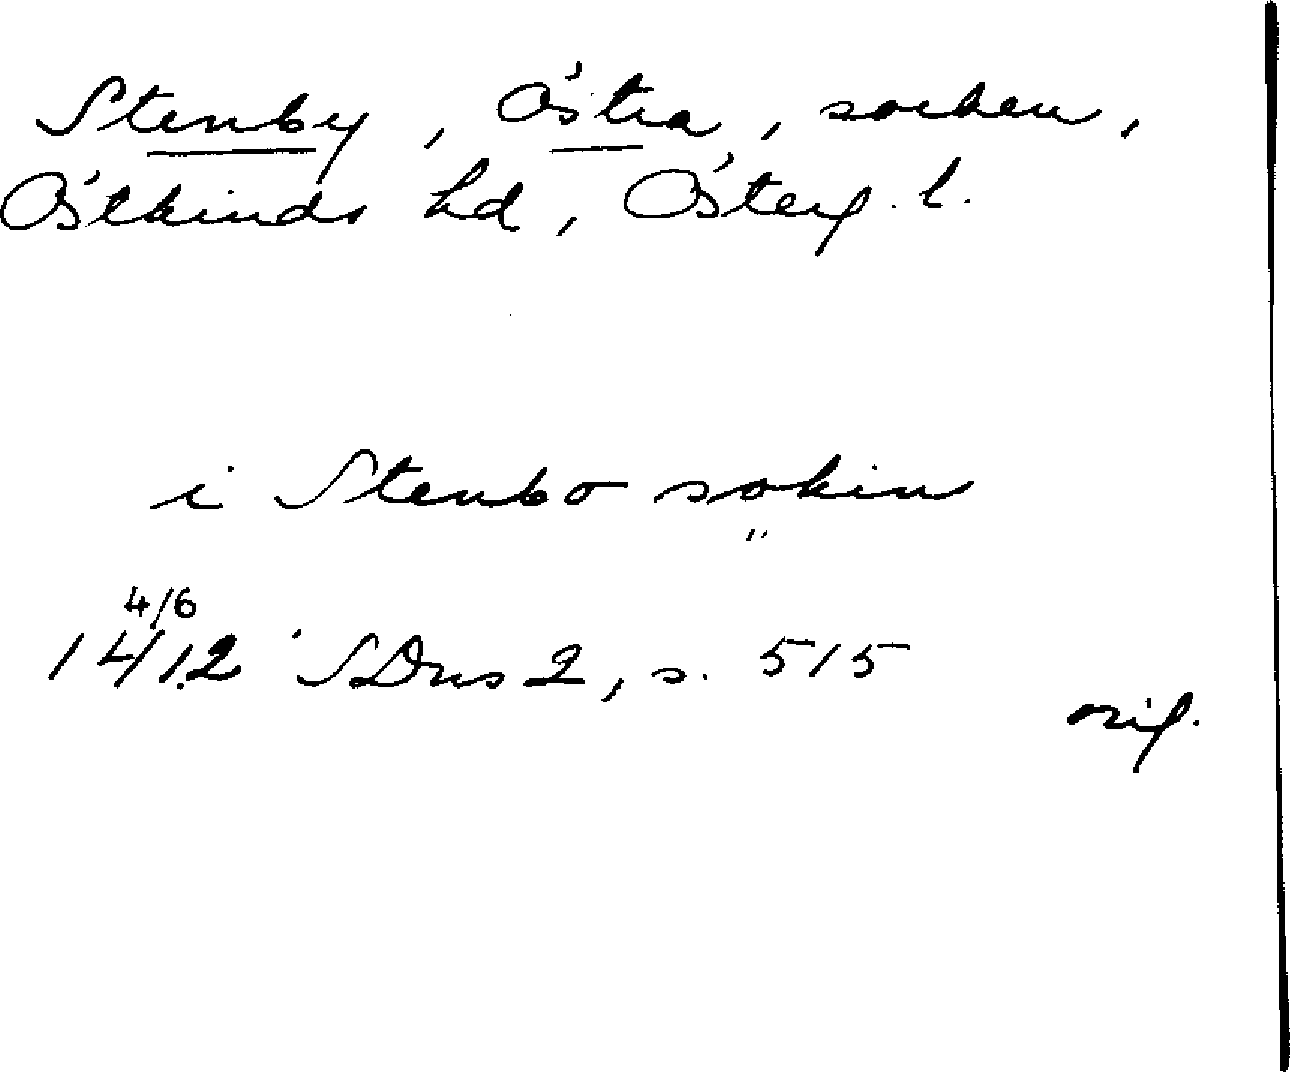 Stenby, Östra, socken,
Östkinds hd, Österg. l.
i Stenbo sokin
"
4/6
1412 SDns 2, s. 515
orig.